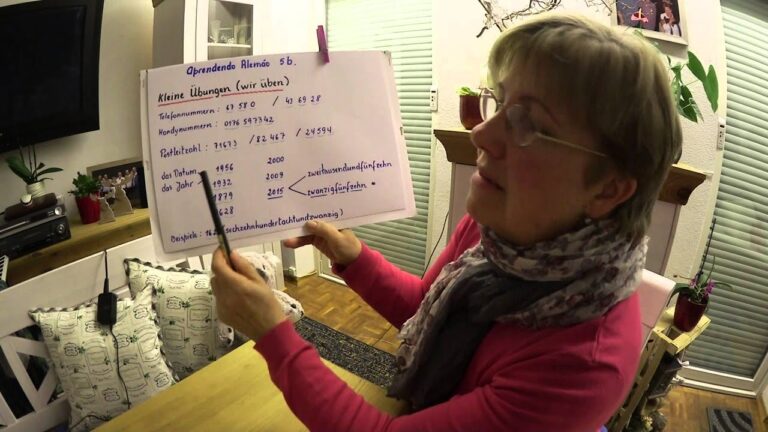 Aprendendo Alemão 5b.
Kleine Übungen (wir üben)
Telefonnummern: 67 58 0 / 43 69 28
Handynummern: 0176 597342
Postleitzahl: 71673 / 82 467 / 24594
das Datum 1956 2000 zweitausendundfünfzehn
das Jahr 1932 2009
1879 2015 zwanzigfünfzehn
628
Beispiele: 16 (sechzehnhundertachtundzwanzig)